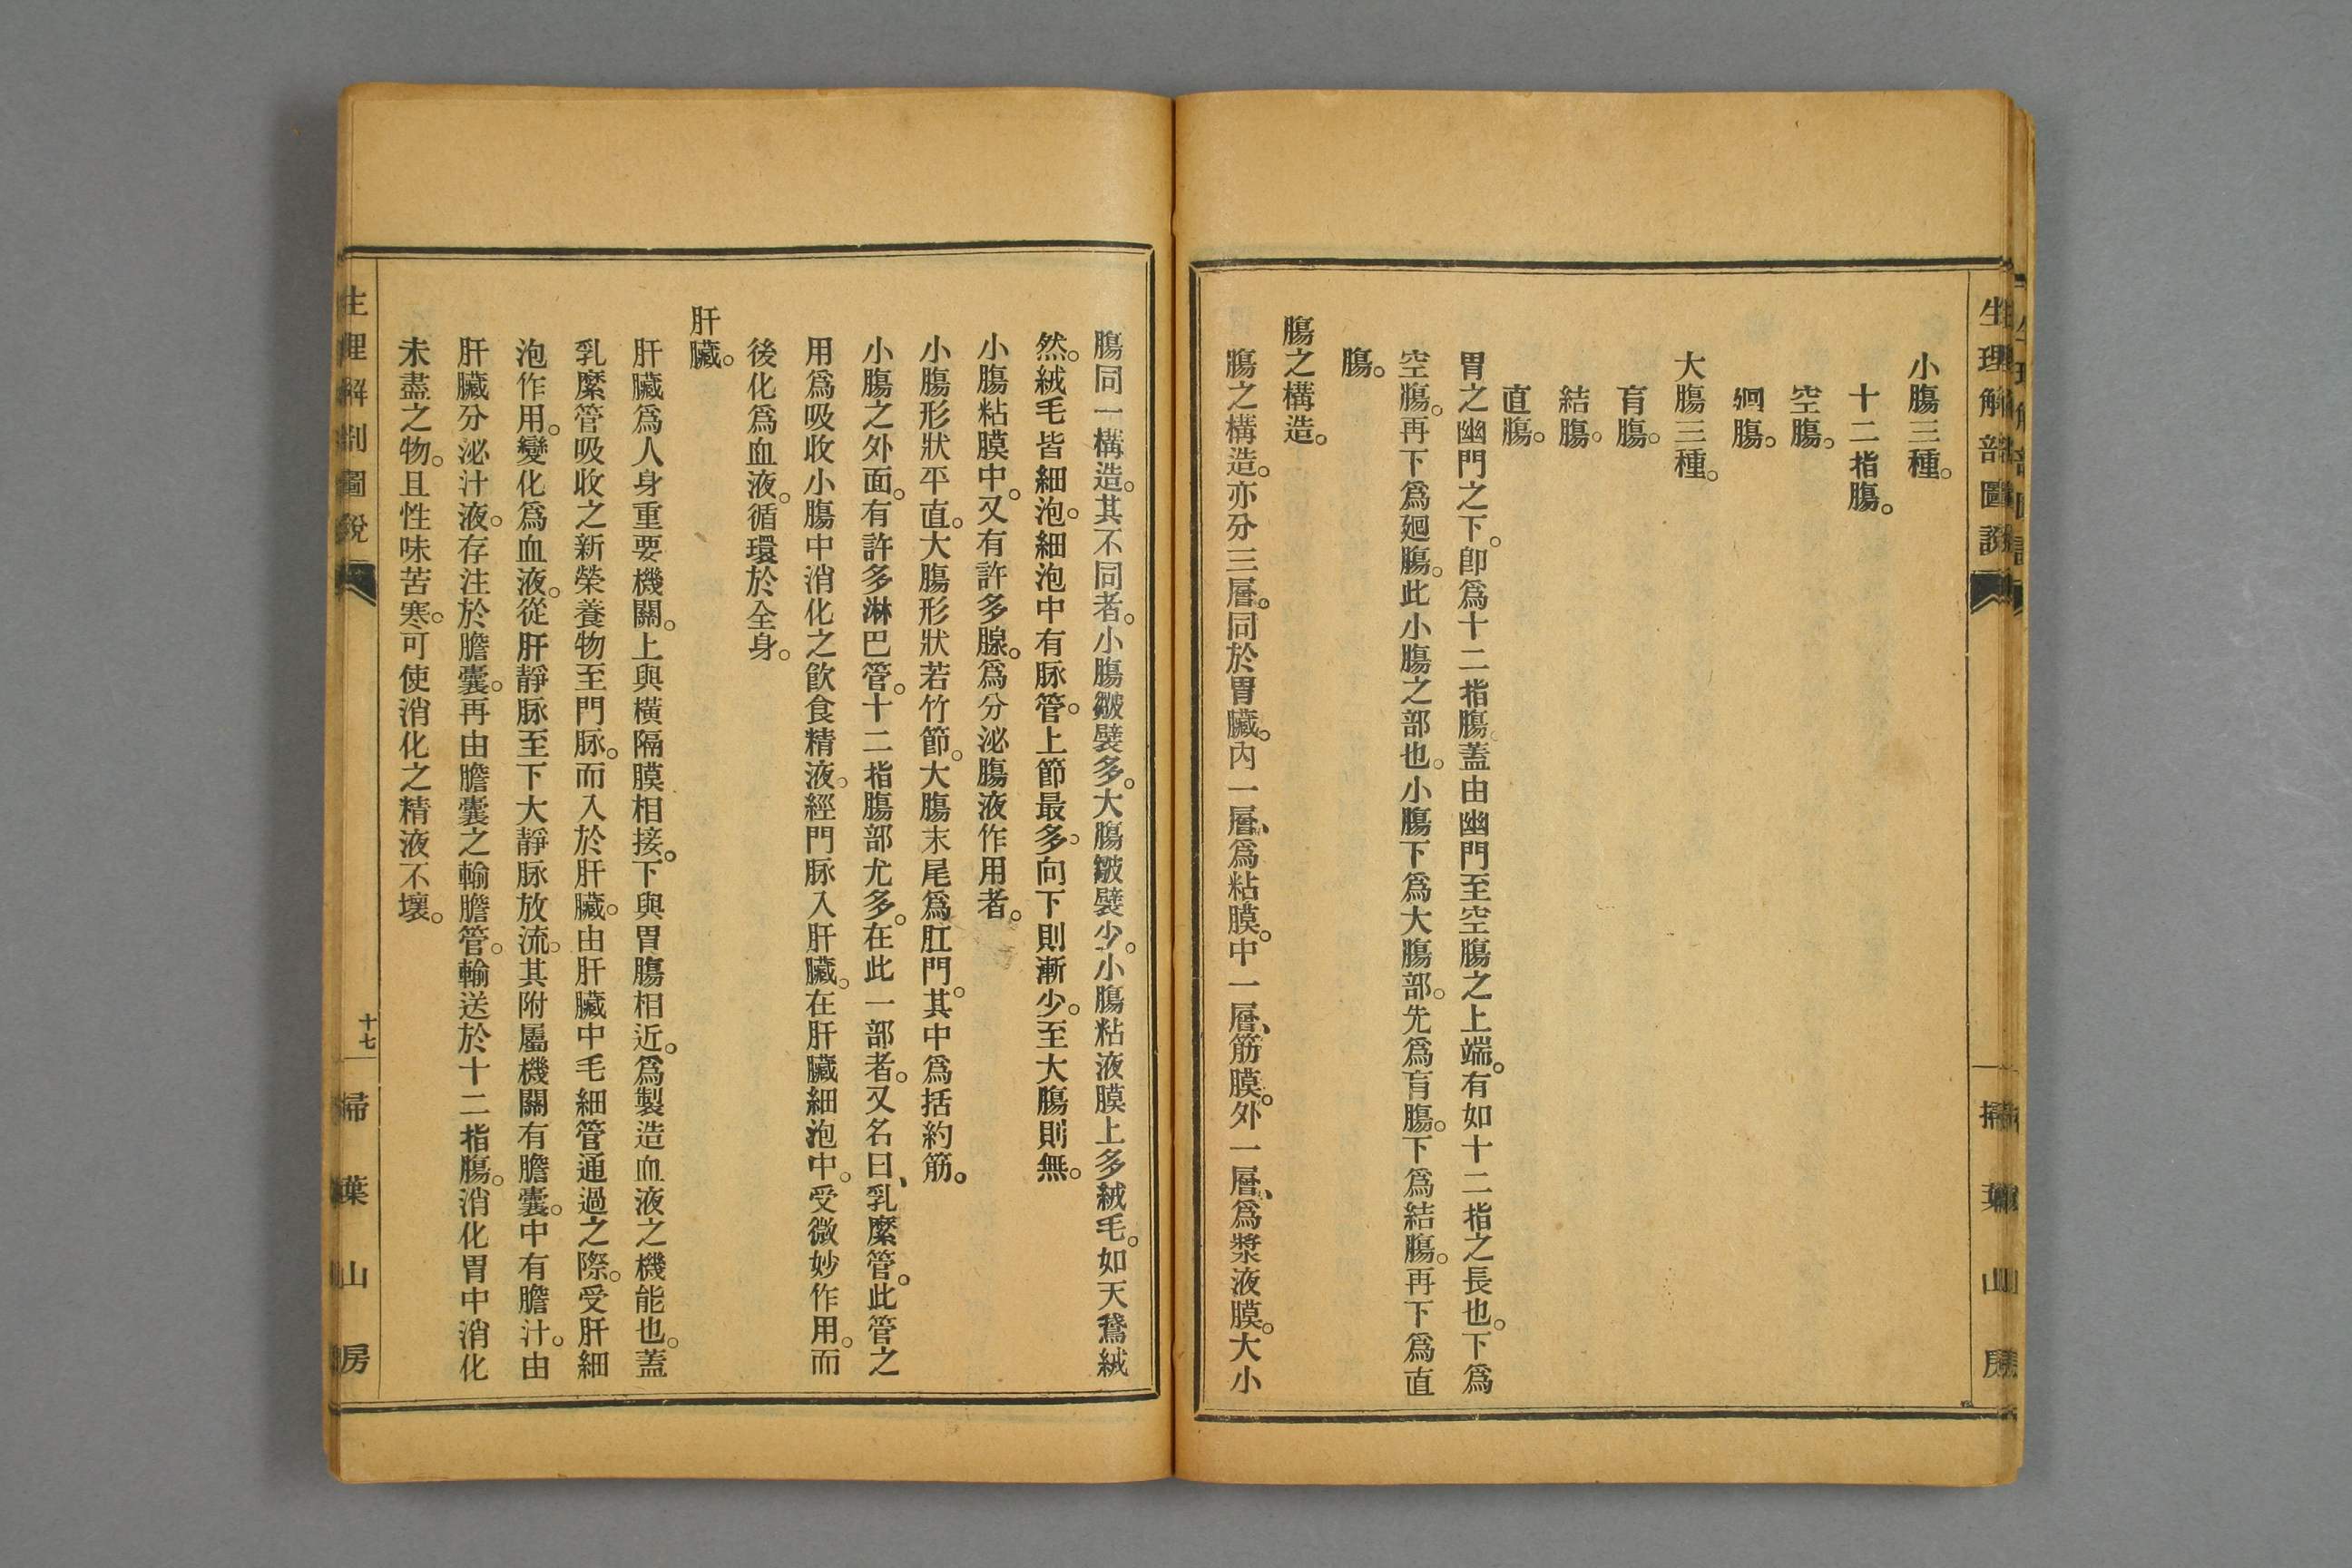 生理解剖圖說
小膓三種。
十二指膓。
空膓。
廻膓。
大膓三種。
盲膓。
結膓。
直膓。
胃之幽門之下。卽爲十二指膓。蓋由幽門至空膓之上端。有如十二指之長也。下爲
空膓。再下爲廻膓。此小膓之部也。小膓下爲大膓部。先爲盲膓。下爲結膓。再下爲直
膓。
膓之構造。
膓之構造。亦分三層。同於胃臟。內一層、爲粘膜。中一層、筋膜。外一層、爲漿液膜。大小
掃葉山房
膓同一構造。其不同者。小膓皺襞多。大膓皺襞少。小膓粘液膜上多絨毛。如天鵞絨
然。絨毛皆細泡。細泡中有脉管。上節最多。向下則漸少。至大膓則無。
小膓粘膜中。又有許多腺。爲分泌膓液作用者。
小膓形狀平直。大膓形狀若竹節。大膓末尾爲肛門。其中爲括約筋。
小膓之外面。有許多淋巴管。十二指膓部尤多。在此一部者。又名曰、乳縻管。此管之
用爲吸收小膓中消化之飮食精液。經門脉入肝臟。在肝臟細泡中。受微妙作用。而
後化爲血液。循環於全身。
肝臟。
肝臟爲人身重要機關。上與橫隔膜相接。下與胃膓相近。爲製造血液之機能也。蓋
乳縻管吸收之新榮養物至門脉。而入於肝臟。由肝臟中毛細管通過之際。受肝細
泡作用。變化爲血液。從肝靜脉至下大靜脉放流。其附屬機關有膽囊。中有膽汁。由
肝臟分泌汁液。存注於膽囊。再由膽囊之輸膽管。輸送於十二指膓。消化胃中消化
未盡之物。且性味苦寒。可使消化之精液不壞。
生理解剖圖說
十七
掃葉山房